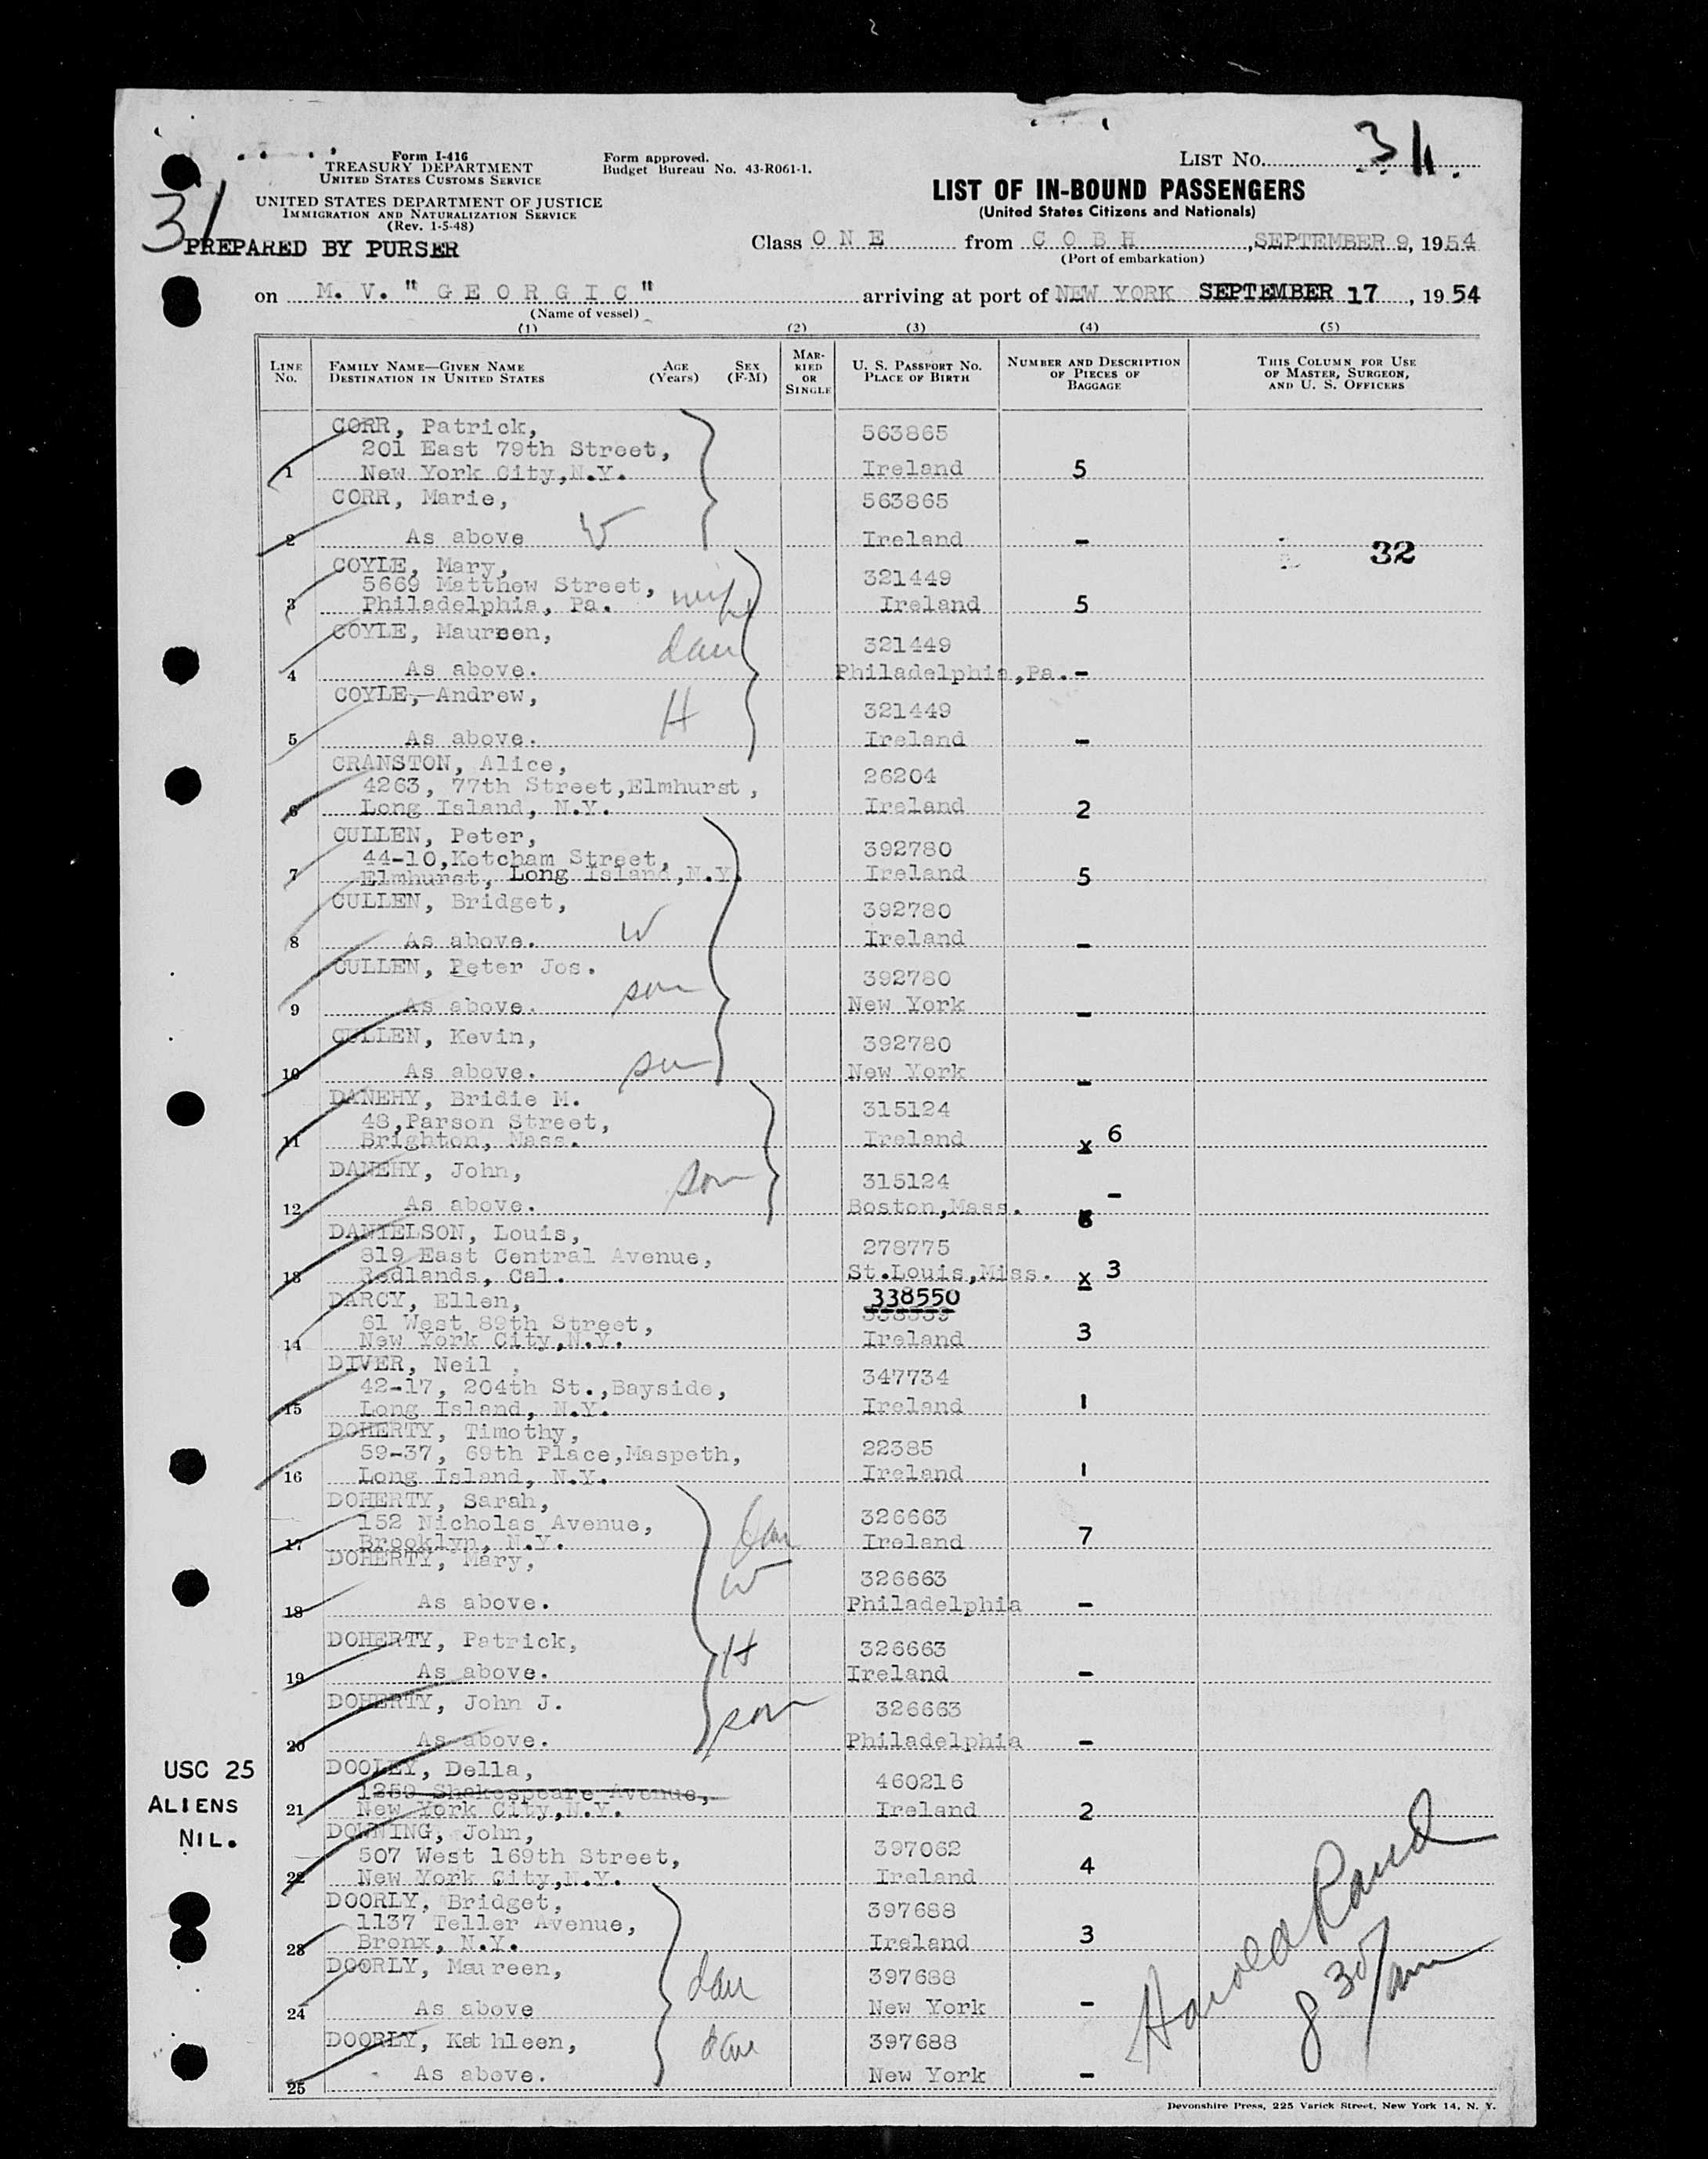 Form I-416
TREASURY DEPARTMENT
UNITED STATES CUSTOMS SERVICE
UNITED STATES DEPARTMENT OF JUSTICE
IMMIGRATION AND NATURALIZATION SERVICE
(Rev. 1-5-48)
31
PREPARED BY PURSER
Form approved.
Budget Bureau No. 43-R061-1.
LIST No. 3
LIST OF IN-BOUND PASSENGERS
(United States Citizens and Nationals)
Class ONE from COBH, SEPTEMBER 9, 1954
(Port of embarkation)
on M. V. "GEORGIC" arriving at port of NEW YORK SEPTEMBER 17, 1954
(Name of vessel)
(1) (2) (3) (4) (5)
LINE No. FAMILY NAME—GIVEN NAME DESTINATION IN UNITED STATES AGE (Years) SEX (F-M) MARRIED OR SINGLE U. S. PASSPORT No. PLACE OF BIRTH NUMBER AND DESCRIPTION OF PIECES OF BAGGAGE THIS COLUMN FOR USE OF MASTER, SURGEON, AND U. S. OFFICERS
CORR, Patrick, 563865
201 East 79th Street,
1 New York City,N.Y. Ireland 5
CORR, Marie, 563865
2 As above W Ireland -
32
COYLE, Mary, 321449
5669 Matthew Street,
3 Philadelphia, Pa. wife Ireland 5
COYLE, Maureen, 321449
dau
4 As above. Philadelphia,Pa. -
COYLE, Andrew, 321449
H
5 As above. Ireland -
CRANSTON, Alice, 26204
4263, 77th Street,Elmhurst,
6 Long Island, N.Y. Ireland 2
CULLEN, Peter, 392780
44-10,Ketcham Street,
7 Elmhurst, Long Island,N.Y. Ireland 5
CULLEN, Bridget, 392780
8 As above. W Ireland -
CULLEN, Peter Jos. 392780
son
9 As above. New York -
CULLEN, Kevin, 392780
10 As above. son New York -
DANEHY, Bridie M. 315124
48,Parson Street,
11 Brighton, Mass. Ireland x 6
DANEHY, John, 315124
son
12 As above. Boston,Mass. -
DANIELSON, Louis, 278775
819 East Central Avenue,
13 Redlands, Cal. St.Louis,Miss. x 3
DARCY, Ellen, 338550
61 West 89th Street,
14 New York City,N.Y. Ireland 3
DIVER, Neil, 347734
42-17, 204th St.,Bayside,
15 Long Island, N.Y. Ireland 1
DOHERTY, Timothy, 22385
59-37, 69th Place,Maspeth,
16 Long Island, N.Y. Ireland 1
DOHERTY, Sarah, 326663
152 Nicholas Avenue, dau
17 Brooklyn, N.Y. Ireland 7
DOHERTY, Mary, 326663
W
18 As above. Philadelphia -
DOHERTY, Patrick, 326663
H
19 As above. Ireland -
DOHERTY, John J. 326663
son
20 As above. Philadelphia -
USC 25
ALIENS
NIL.
DOOLEY, Della, 460216
1259 Shakespeare Avenue,
21 New York City,N.Y. Ireland 2
DOWNING, John, 397062
507 West 169th Street,
22 New York City,N.Y. Ireland 4
DOORLY, Bridget, 397688
1137 Teller Avenue,
23 Bronx, N.Y. Ireland 3
DOORLY, Maureen, 397688
dau
24 As above New York -
DOORLY, Kathleen, 397688
dau
25 As above. New York -
Harold Rand
8 30/am
Devonshire Press, 225 Varick Street, New York 14, N. Y.